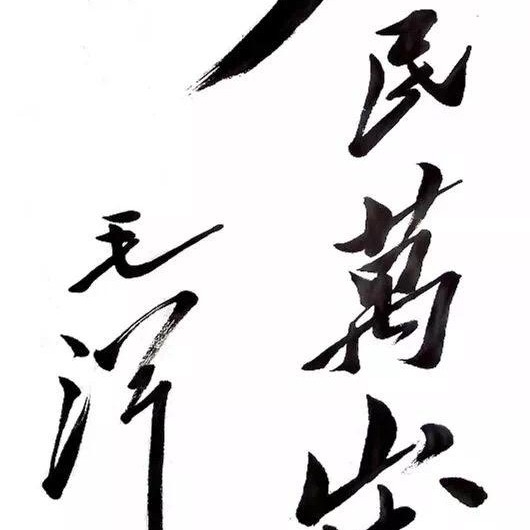 民萬歲
毛泽